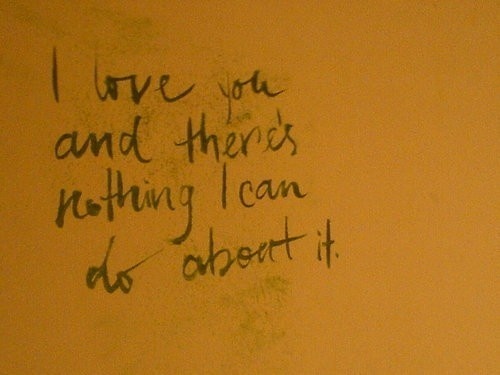 I love you
and there's
nothing I can
do about it.